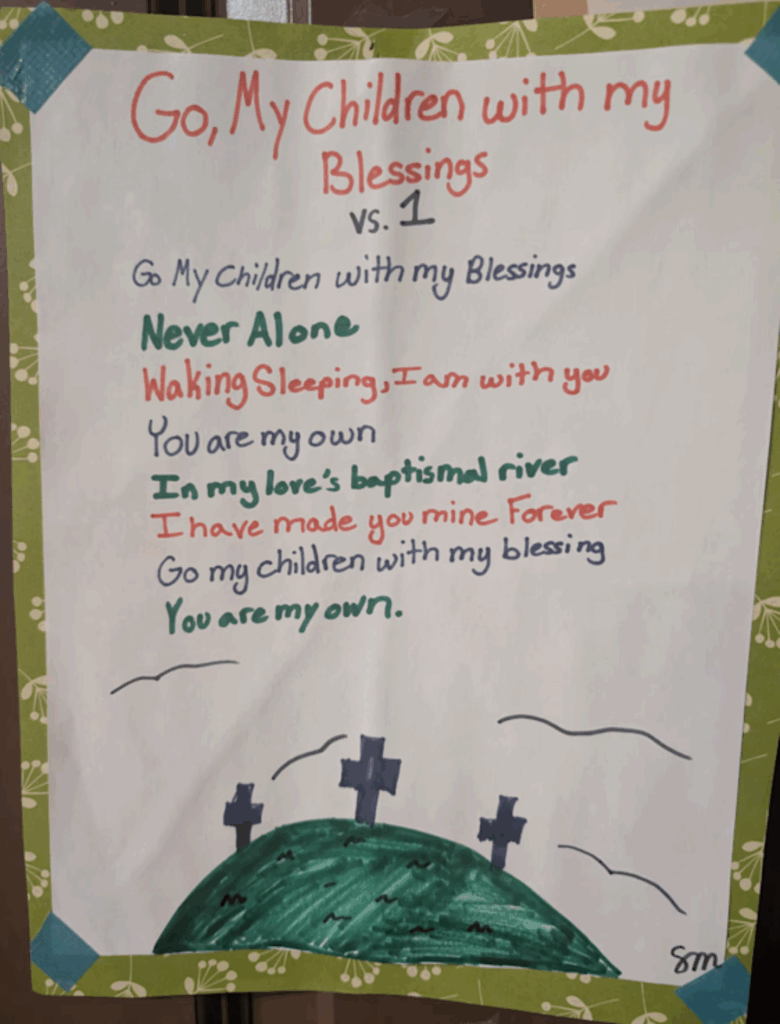 Go, My Children with my
Blessings
vs. 1
Go My Children with my Blessings
Never Alone
Waking Sleeping, I am with you
You are my own
In my love's baptismal river
I have made you mine Forever
Go my children with my blessing
You are my own.
SM